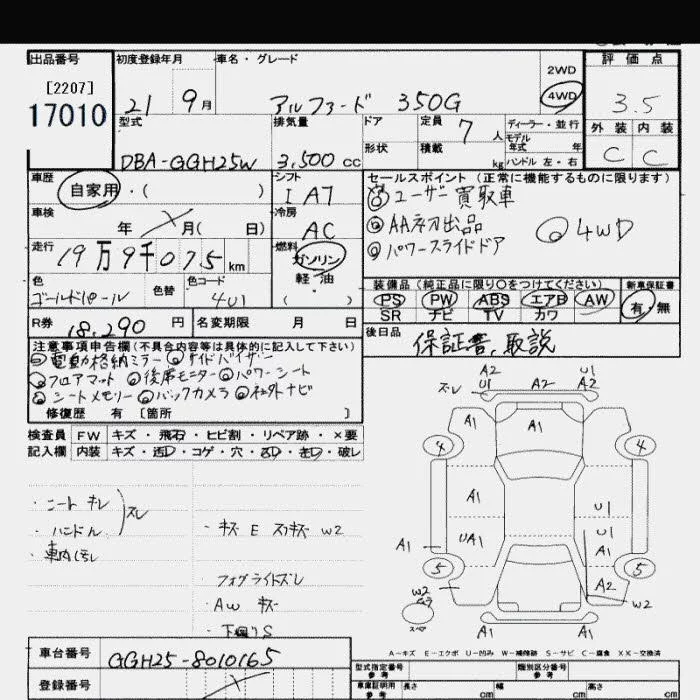 出品番号 初度登録年月 車名・グレード 評価点
[2207]
17010
21 9月 アルファード 350G 2WD 4WD 3.5
型式 排気量 ドア 定員 7人 ディーラー・並行 外装 内装
モデル年式 年
DBA-GGH25W 3,500cc 形状 積載 kg ハンドル 左・右 C C
車歴 シフト セールスポイント(正常に機能するものに限ります)
自家用・( ) IA7 ◎ユーザー買取車
車検 冷房 ◎AA初出品 ◎4WD
年 月( 日) AC ◎パワースライドドア
走行 燃料
19万9千075km ガソリン
軽油
( )
色 色替 色コード 装備品(純正品に限り○をつけてください) 新車保証書
ゴールドパール 4U1 PS PW ABS エアB AW 有・無
SR ナビ TV カワ
R券 18,290円 名変期限 月 日 後日品 保証書、取説
注意事項申告欄(不具合内容等は具体的に記入して下さい)
◎電動格納ミラー ◎サイドバイザー
◎フロアマット ◎後席モニター ◎パワーシート
◎シートメモリー ◎バックカメラ ◎社外ナビ
修復歴 有 [箇所 ]
検査員 FW キズ・飛石・ヒビ割・リペア跡・×要
記入欄 内装 キズ・汚D・コゲ・穴・ろD・きD・破レ
・シート キレ
スレ
・ハンドル
・車内汚し
・キズ E スリキズ W2
フォグライトズレ
・AW キズ
・下廻りS
ズレ A2 U1 A2 U1 A2
A1
4 4
A1 U1
A1 UA1 U1 A1
5 5
W2 A2 W2
スペア
A1 A1
A-キズ E-エクボ U-凹み W-補修跡 S-サビ C-腐食 XX-交換済
車台番号 GGH25-8010165
型式指定番号 参考 類別区分番号 参考
登録番号
車庫証明用 参考 長さ cm 幅 cm 高さ cm